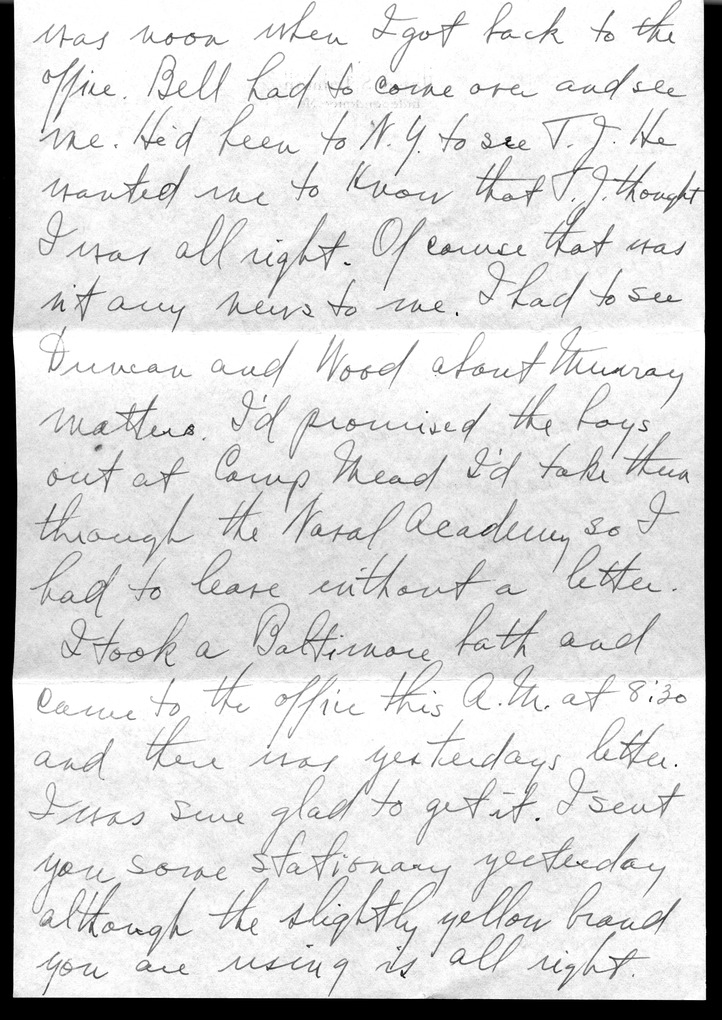 was noon when I got back to the
office. Bell had to come over and see
me. He'd been to N.Y. to see T.J. He
wanted me to know that T.J. thought
I was all right. Of course that was
n't any news to me. I had to see
Duncan and Wood about Murray
matters. I'd promised the boys
out at Camp Mead I'd take them
through the Naval Academy so I
had to leave without a letter.
I took a Baltimore bath and
came to the office this A.M. at 8:30
and there was yesterdays letter.
I was sure glad to get it. I sent
you some stationary yesterday
although the slightly yellow brand
you are using is all right.